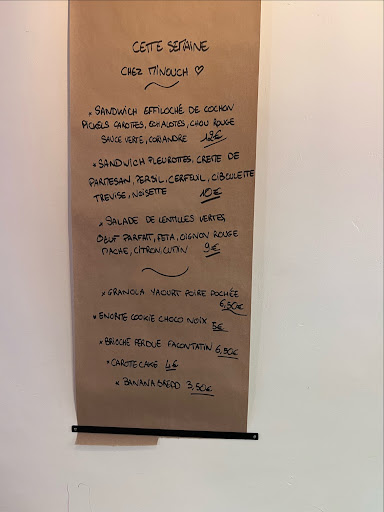 CETTE SEMAINE
CHEZ MINOUCH ♡
* SANDWICH EFFILOCHÉ DE COCHON
PICKELS CAROTTES, ECHALOTES, CHOU ROUGE
SAUCE VERTE, CORIANDRE 12€
* SANDWICH PLEUROTTES, CREME DE
PARMESAN, PERSIL, CERFEUIL, CIBOULETTE
TREVISE, NOISETTE 10€
* SALADE DE LENTILLES VERTES,
OEUF PARFAIT, FETA, OIGNON ROUGE
MACHE, CITRON, CUMIN 9€
* GRANOLA YAOURT POIRE POCHÉE
6,50€
* ENORME COOKIE CHOCO NOIX 5€
* BRIOCHE PERDUE FACON TATIN 6,50€
* CAROTE CAKE 4€
* BANANA BREAD 3,50€